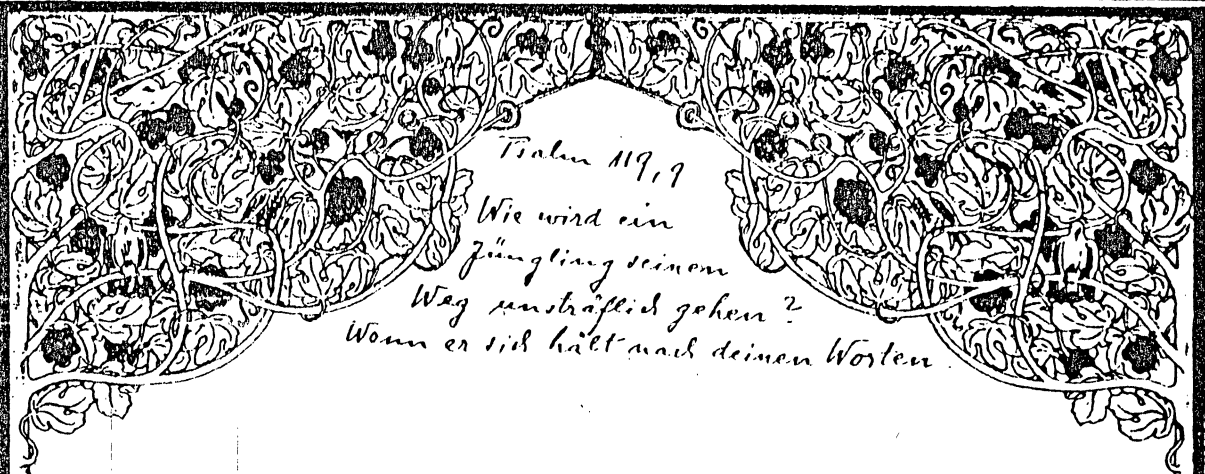 Psalm 119,9
Wie wird ein
Jüngling seinem
Weg unsträflich gehen?
Wenn er sich hält nach deinen Worten